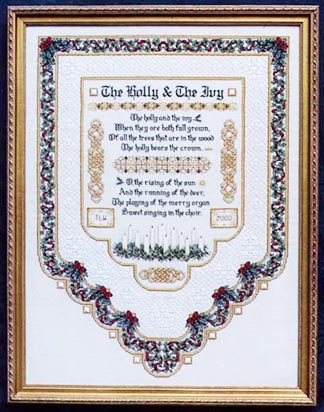 The Holly & The Ivy
The holly and the ivy
When they are both full grown,
Of all the trees that are in the wood
The holly bears the crown.
O the rising of the sun
And the running of the deer,
The playing of the merry organ
Sweet singing in the choir.
TLW 2000